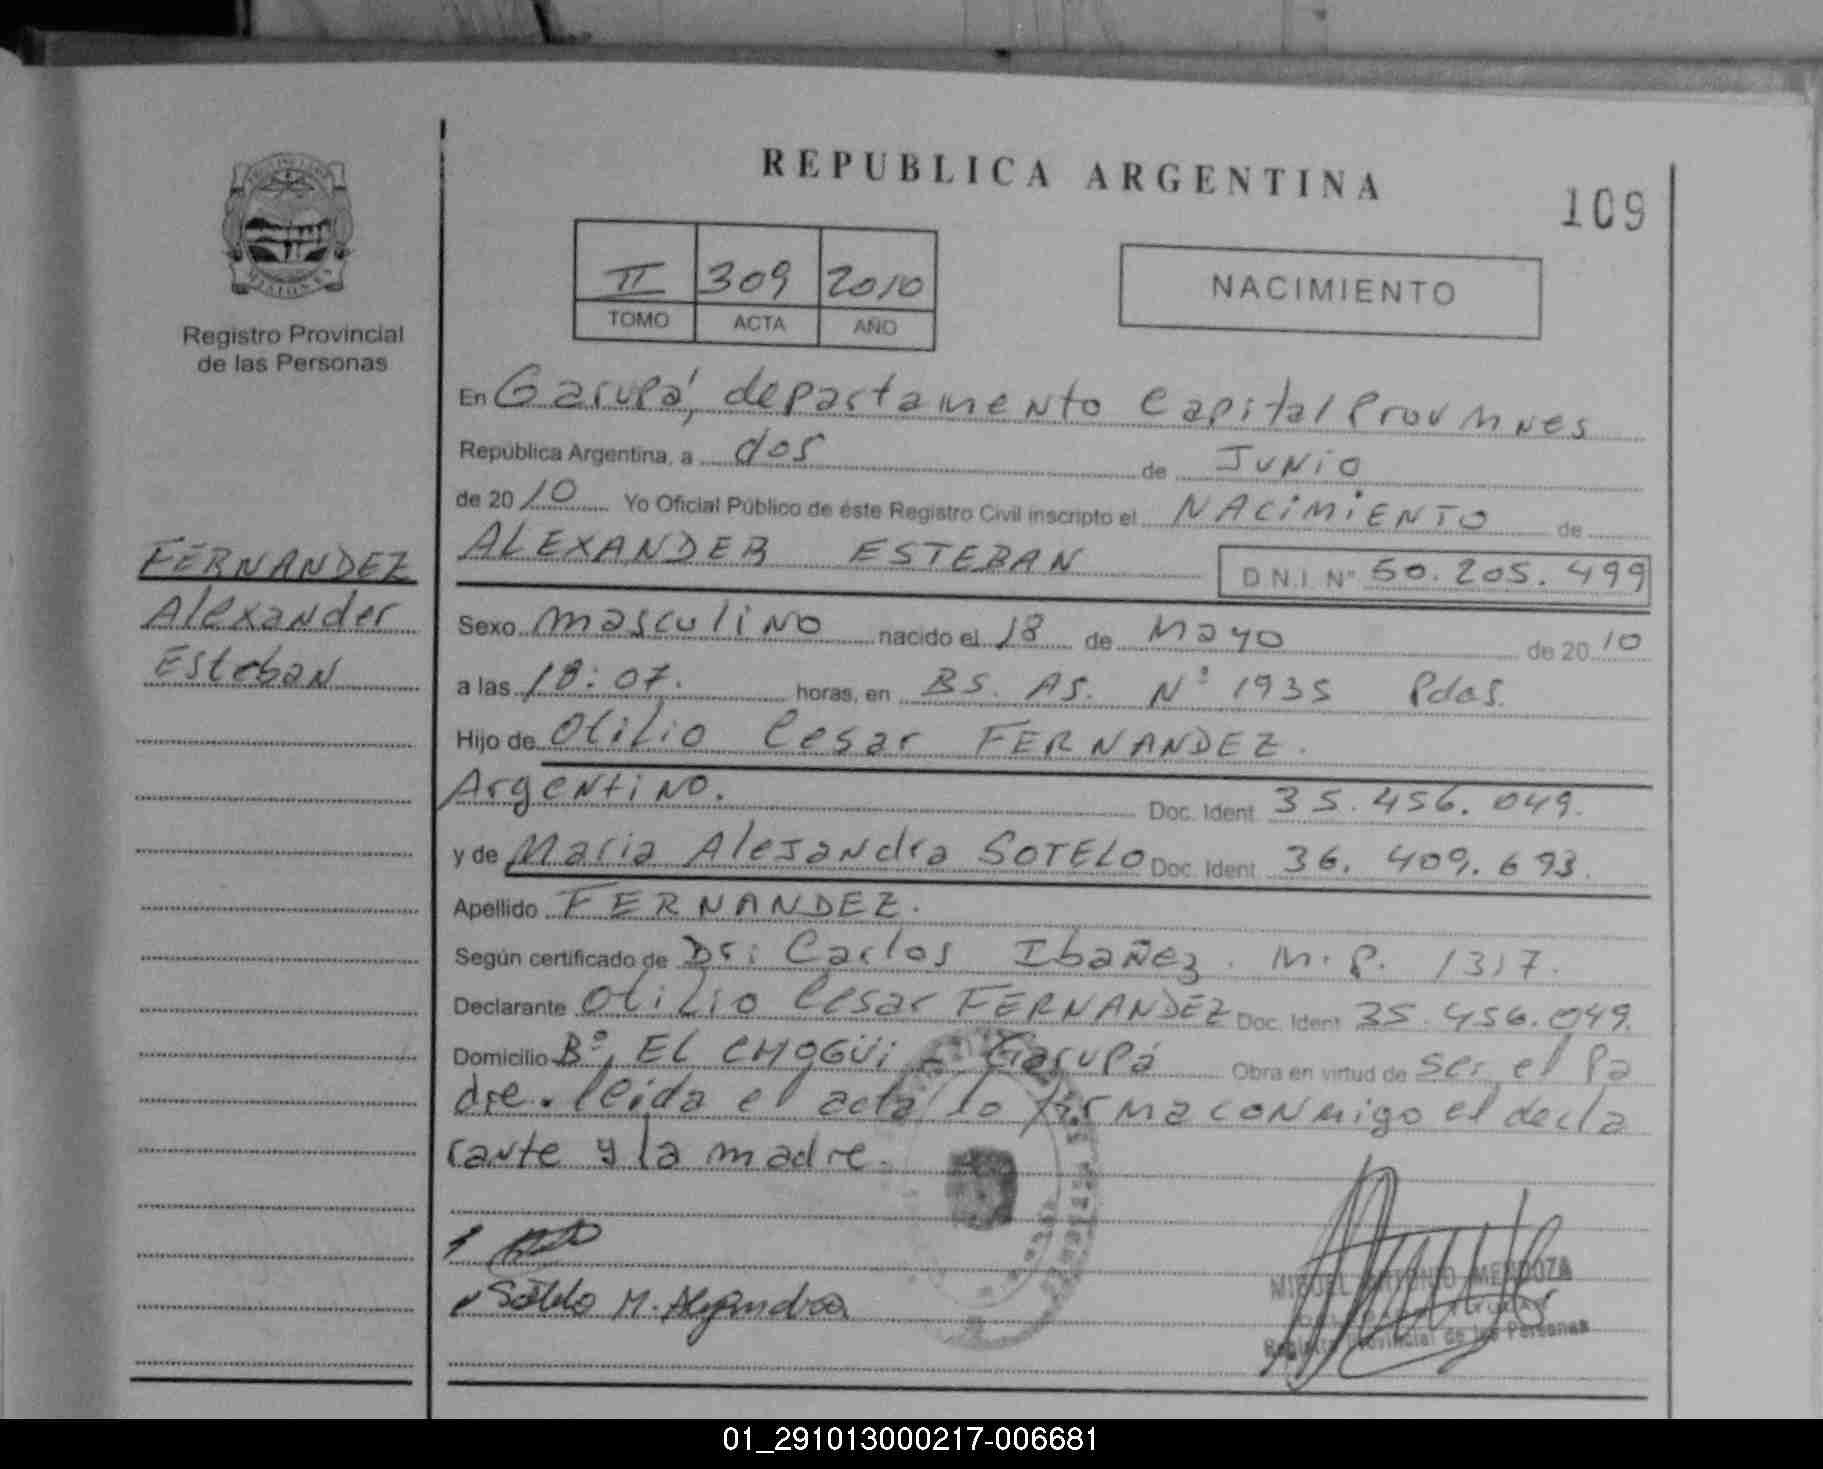 REPUBLICA ARGENTINA
109
II 309 2010
TOMO ACTA AÑO
NACIMIENTO
Registro Provincial
de las Personas
FERNANDEZ
Alexander
Esteban
En Garupá, departamento Capital Prov Mnes
República Argentina, a dos de Junio
de 2010 Yo Oficial Público de éste Registro Civil inscripto el NACIMIENTO de
ALEXANDER ESTEBAN D.N.I. Nº 50.205.499
Sexo masculino nacido el 18 de Mayo de 2010
a las 18:07. horas, en BS. AS. Nº 1935 Pdas.
Hijo de Otilio Cesar FERNANDEZ.
Argentino. Doc. Ident. 35.456.049.
y de Maria Alejandra SOTELO Doc. Ident. 36.409.693.
Apellido FERNANDEZ.
Según certificado de Dr: Carlos Ibañez. M.P. 1317.
Declarante Otilio Cesar FERNANDEZ Doc. Ident. 35.456.049.
Domicilio Bº, EL CHOGÜi - Garupá Obra en virtud de ser el Pa
dre. leida el acta lo firma conmigo el decla
rante y la madre.
Sotelo M. Alejandra
MIGUEL ANTONIO MENDOZA
Registro Provincial de las Personas
01_291013000217-006681